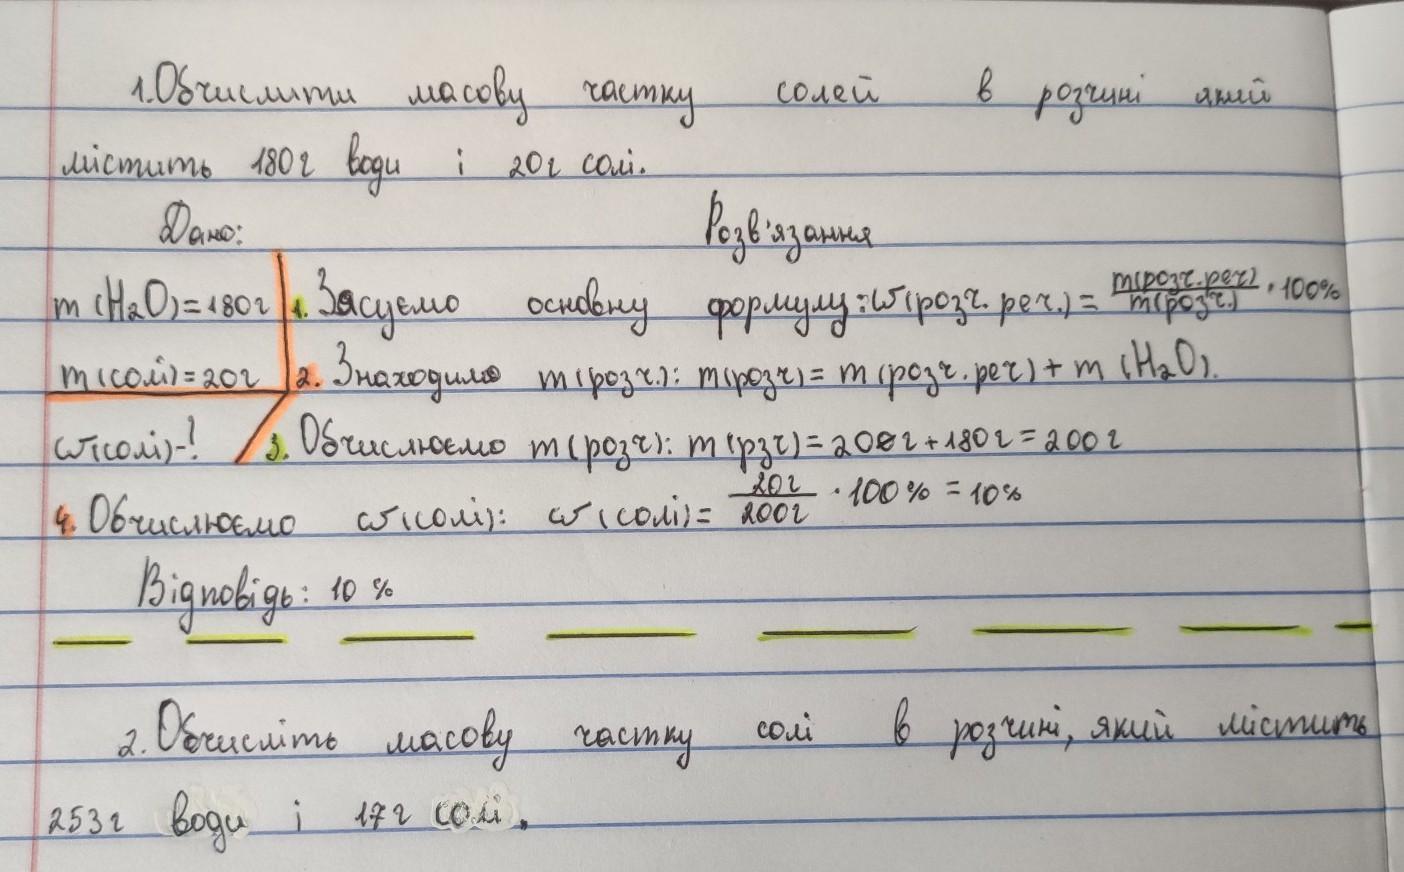 1. Обчислити масову частку солей в розчині який
містить 180г води і 20г солі.
Дано: Розв'язання
m(H₂O)=180г 1. Засуємо основну формулу: w(розч. реч.)= m(розч.реч)/m(розч.) · 100%
m(солі)=20г 2. Знаходимо m(розч.): m(розч)= m(розч.реч)+ m (H₂O).
w(солі)-? 3. Обчислюємо m(розч): m(рзч)= 20г+180г=200г
4. Обчислюємо w(солі): w(солі)= 20г/200г · 100% = 10%
Відповідь: 10%
2. Обчисліть масову частку солі в розчині, який містить
253г води і 17г солі.